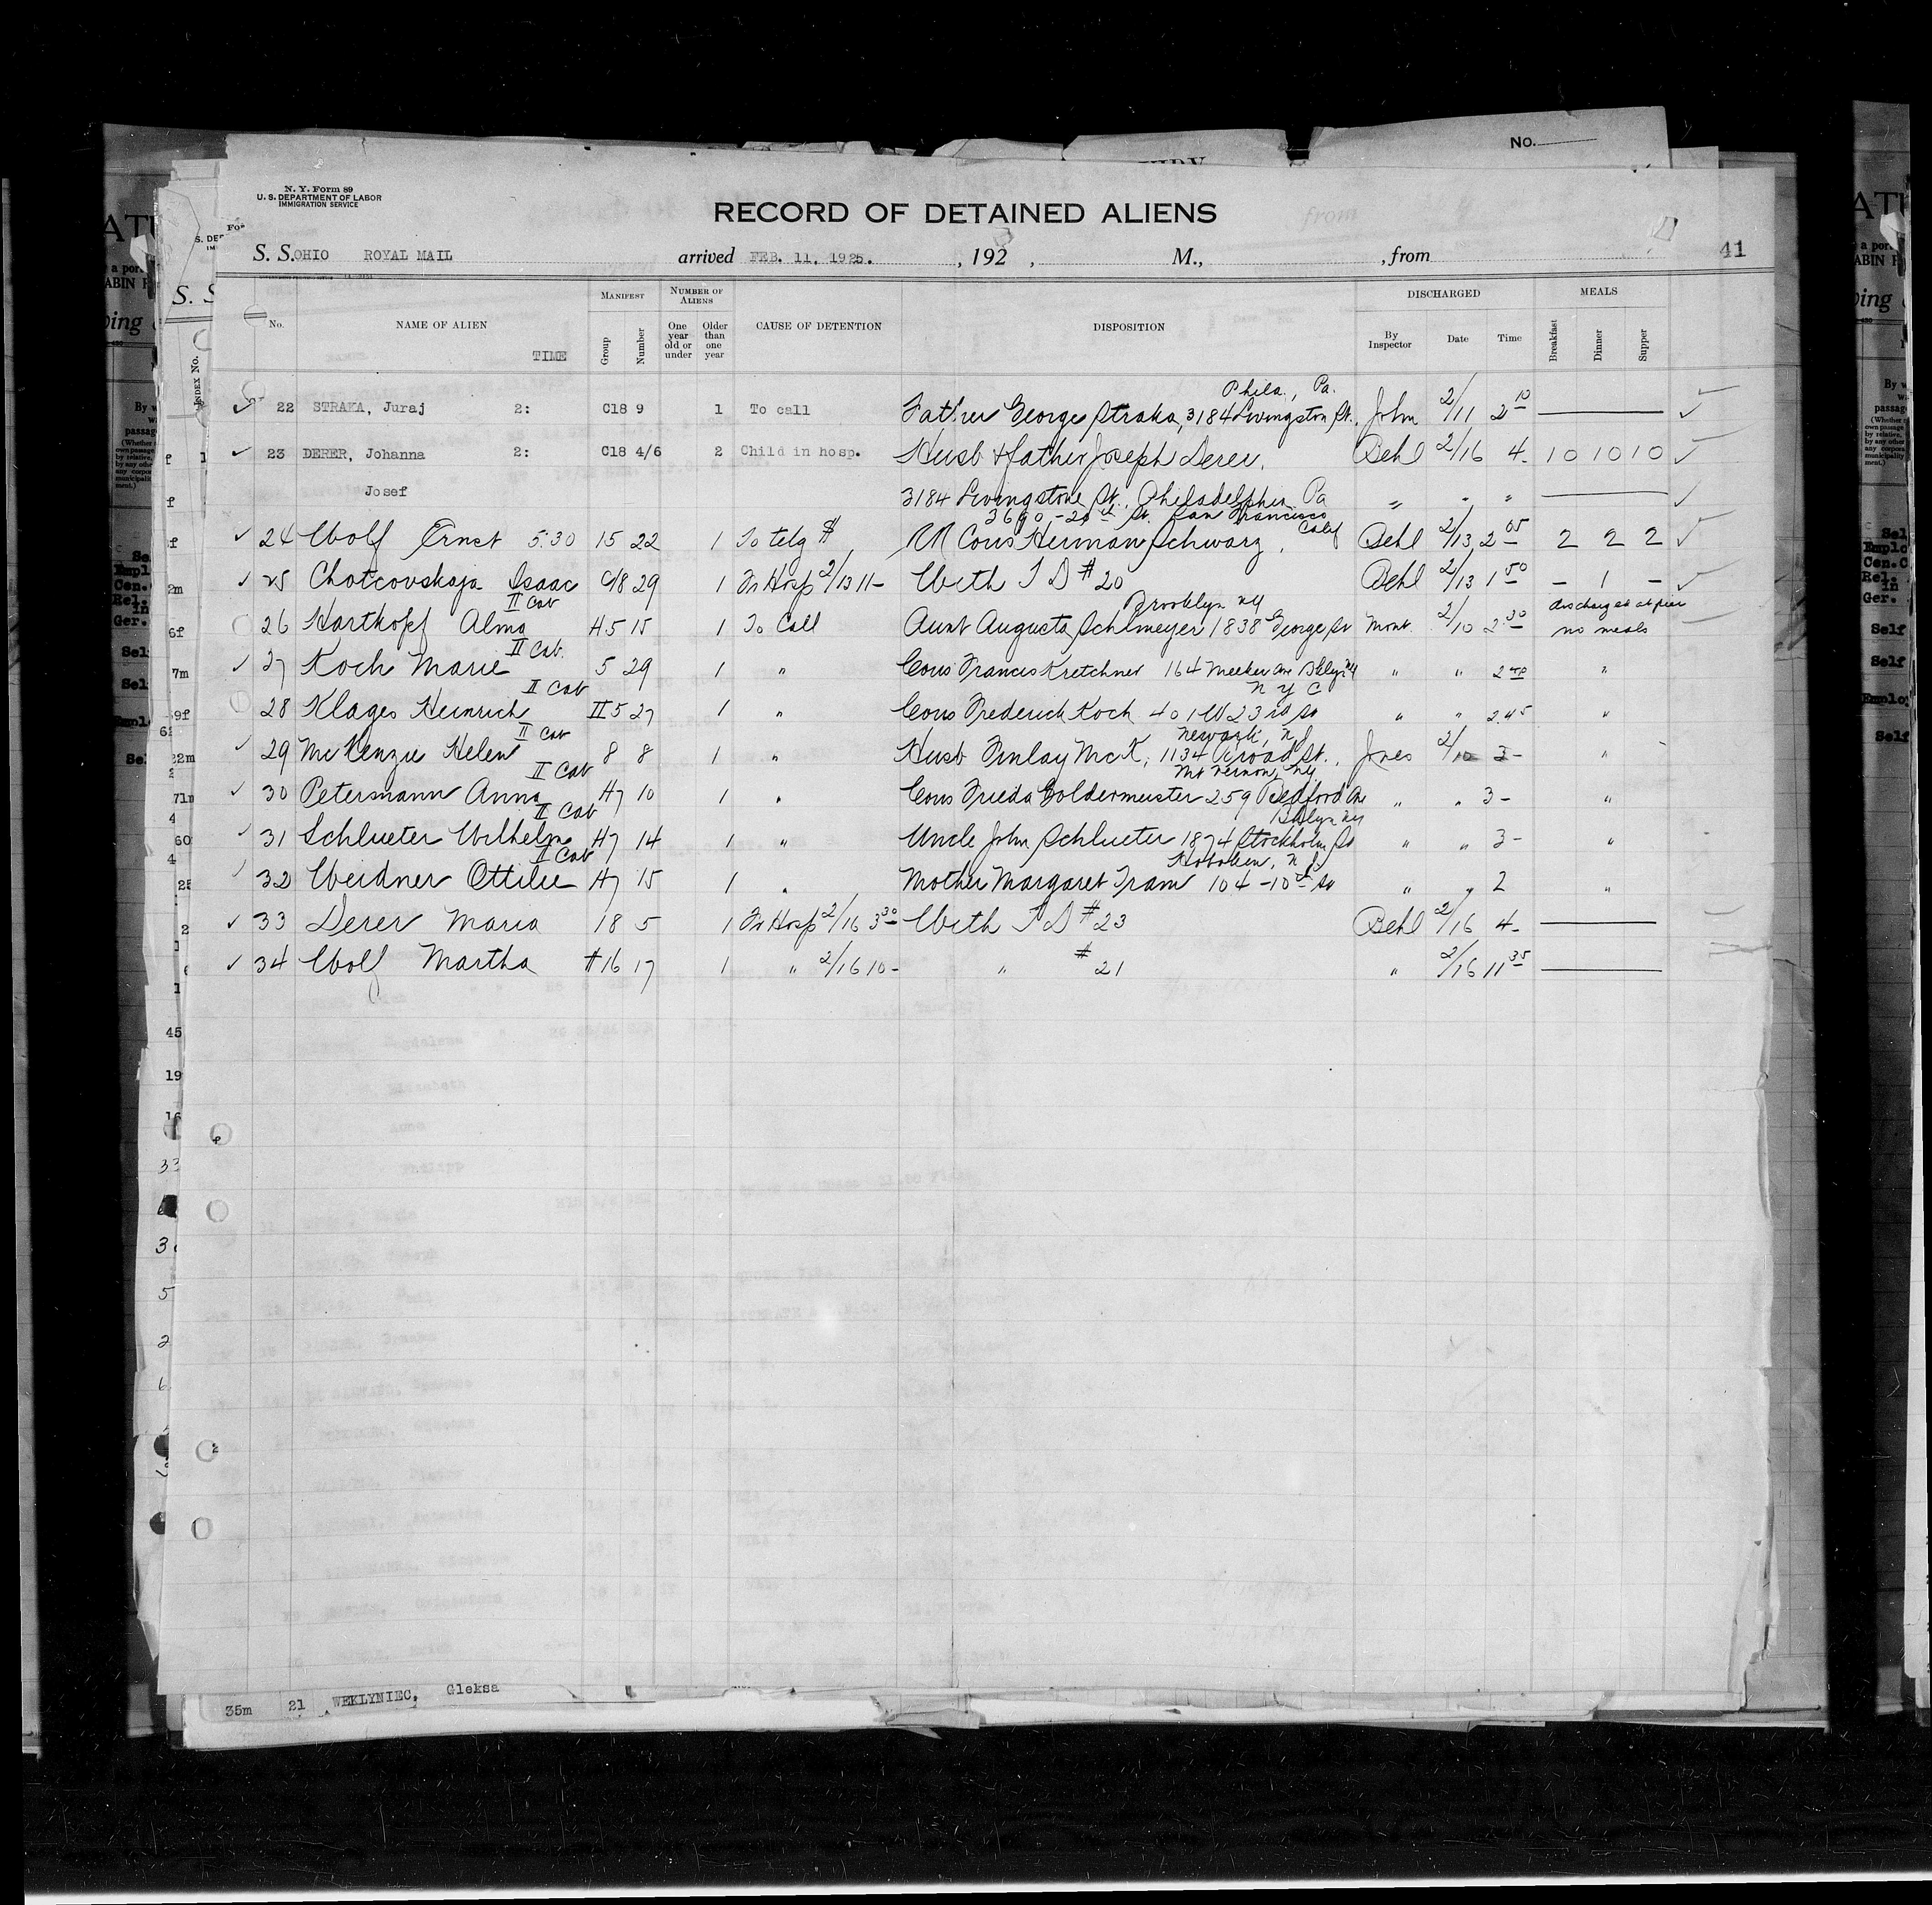 No.
N. Y. Form 89
U. S. DEPARTMENT OF LABOR
IMMIGRATION SERVICE
RECORD OF DETAINED ALIENS
S. S. OHIO ROYAL MAIL arrived FEB. 11, 1925. , 192 , M., , from 41
No. NAME OF ALIEN TIME Manifest Group Number Number of Aliens One year old or under Older than one year CAUSE OF DETENTION DISPOSITION DISCHARGED By Inspector Date Time MEALS Breakfast Dinner Supper
Phila., Pa.
✓ 22 STRAKA, Juraj 2: C18 9 1 To call Father George Straka, 3184 Livingston St., John 2/11 2 10 ✓
✓ 23 DERER, Johanna 2: C18 4/6 2 Child in hosp. Husb & father Joseph Derer. Behl 2/16 4- 10 10 10 ✓
Josef 3184 Livingstone St., Philadelphia Pa " " " ✓
3690 - 20th St. San Francisco
✓ 24 Wolf Ernst 5:30 15 22 1 To telg $ Cous Herman Schwarz, Calif Behl 2/13 2 05 2 2 2 ✓
✓ 25 Chotcovskaja Isaac C18 29 1 Fr Hosp 2/13 11- With S D #20 Behl 2/13 1 50 - 1 - ✓
II Cab Brooklyn NY discharged at pier
26 Harthopf Alma H 5 15 1 To Call Aunt Augusta Schlmeyer 1838 George St Mont. 2/10 2.30 no meals
II Cab.
✓ 27 Koch Marie 5 29 1 " Cous Francis Kretchner 164 Meeker Ave Bklyn NY " " 2 40 "
II Cab N Y C
28 Klages Heinrich II 5 27 1 " Cous Frederick Koch 401 W 23rd St " " 2.45 "
II Cab Newark, N.J.
✓ 29 McKenzie Helen 8 8 1 " Husb Finlay McK, 1134 Broad St., Jones 2/10 3- "
II Cab Mt Vernon, NY.
✓ 30 Petermann Anna H7 10 1 " Cous Frieda Goldermeister 259 Bedford Ave " " 3- "
II Cab Bklyn NY
✓ 31 Schlueter Wilhelm H7 14 1 " Uncle John Schlueter 1874 Stockholm St " " 3- "
II Cab Hoboken, N.J.
32 Weidner Ottilie H7 15 1 " Mother Margaret Tram 104-10th St " " 2 "
✓ 33 Derer Maria 18 5 1 Fr Hosp 2/16 3 30 With S D #23 Behl 2/16 4-
✓ 34 Wolf Martha #16 17 1 " 2/16 10- " #21 " 2/16 11 35
35m 21 WEKLYNIEC, Gleksa